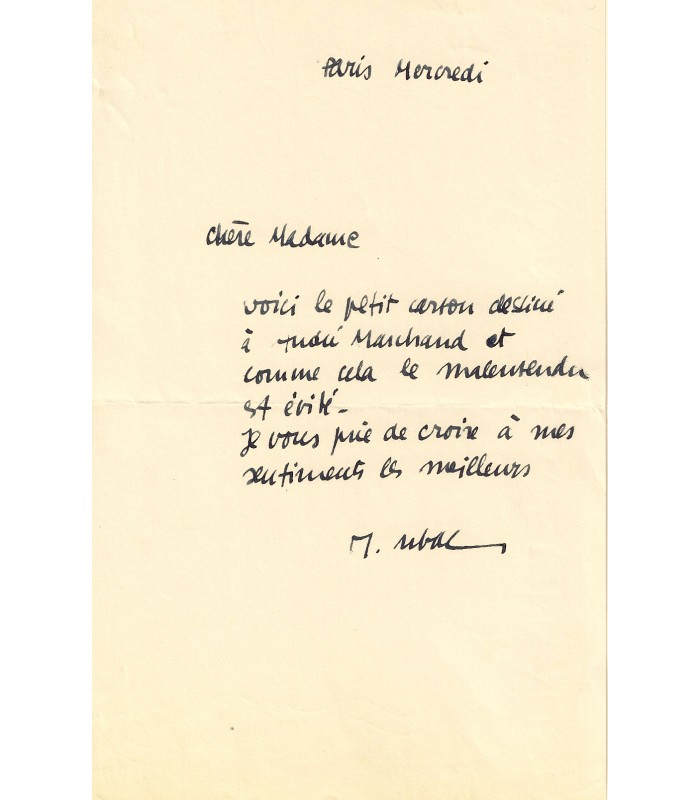 Paris Mercredi
Chère Madame
voici le petit carton destiné
à André Marchand et
comme cela le malentendu
est évité -
Je vous prie de croire à mes
sentiments les meilleurs